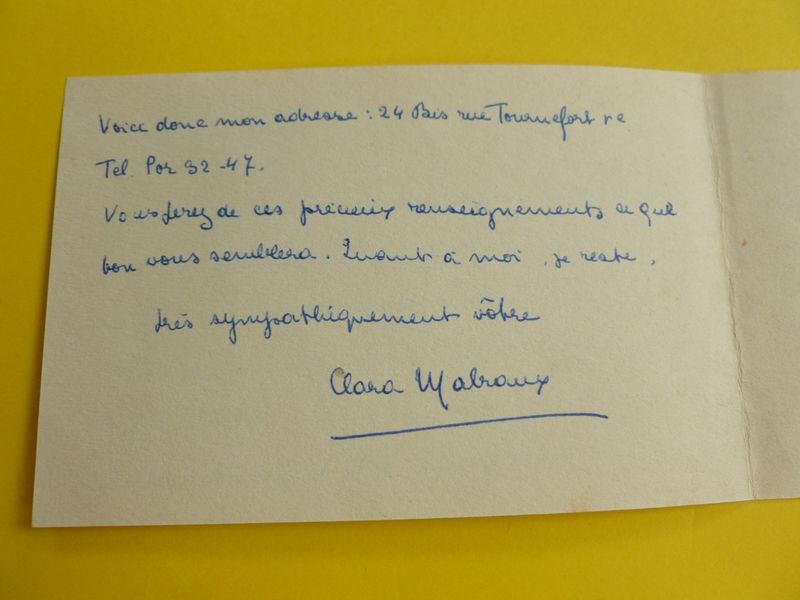 Voici donc mon adresse : 24 Bis rue Tournefort Ve
Tel. Por 32-47.
Vous ferez de ces précieux renseignements ce que
bon vous semblera. Quant à moi, je reste,
très sympathiquement vôtre
Clara Malraux